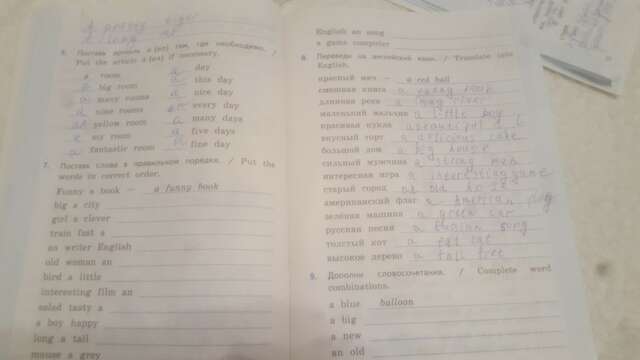 6. Поставь артикль a (an) там, где необходимо. /
Put the article a (an) if necessary.
a room
a day
a big room
a this day
many rooms
a nice day
nine rooms
every day
yellow room
a many days
my room
a five days
a fantastic room
fine day
7. Поставь слова в правильном порядке. / Put the
words in correct order.
Funny a book — a funny book
big a city
girl a clever
train fast a
an writer English
old woman an
bird a little
interesting film an
salad tasty a
a boy happy
long a tall
mouse a grey
English an song
a game computer
8. Переведи на английский язык. / Translate into
English.
красный мяч — a red ball
смешная книга a funny book
длинная река a long river
маленький мальчик a little boy
красивая кукла a beautiful
вкусный торт a delicious cake
большой дом a big house
сильный мужчина a strong men
интересная игра a interesting game
старый город an old
американский флаг a American flag
зелёная машина a green car
русская песня a Russian song
толстый кот a fat cat
высокое дерево a tall tree
9. Дополни словосочетания. / Complete word
combinations.
a blue balloon
a big
a new
an old